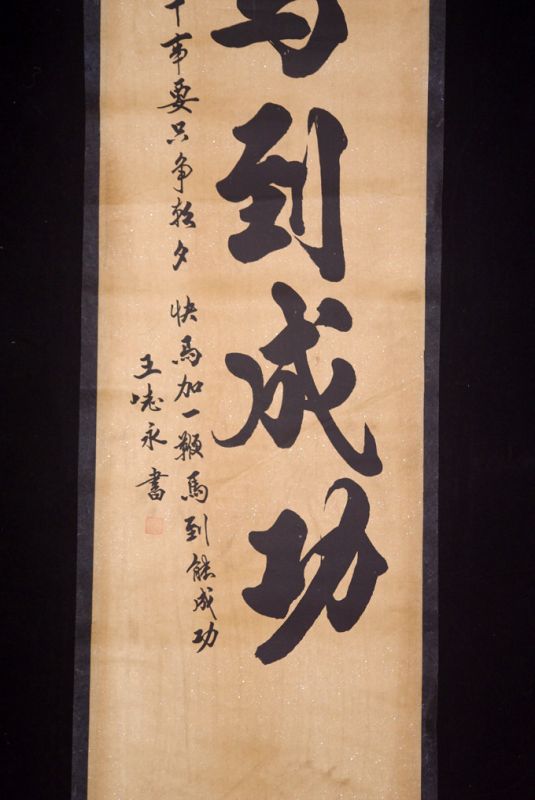 马到成功
事要只争朝夕 快馬加一鞭馬到能成功
王 永書